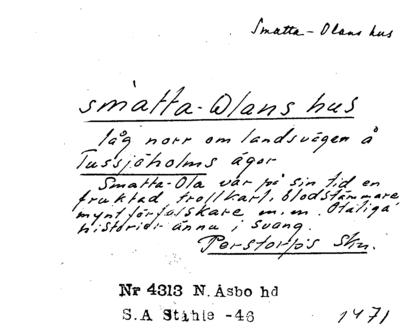 Smatta-Olans hus
smatta-Olans hus
låg norr om landsvägen å
Tussjöholms ägor
Smatta-Ola var på sin tid en
fruktad trollkarl, blodstämmare,
myntförfalskare m.m. Otaliga
historier ännu i svang.
Perstorps skn.
Nr 4313 N. Åsbo hd
S.A Ståhle -46
1471